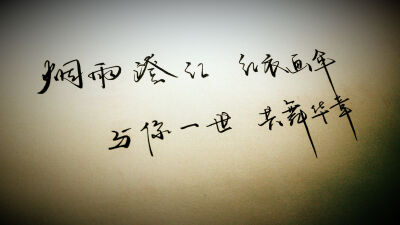 烟雨澄江 红衣画伞
与你一世 共舞华章